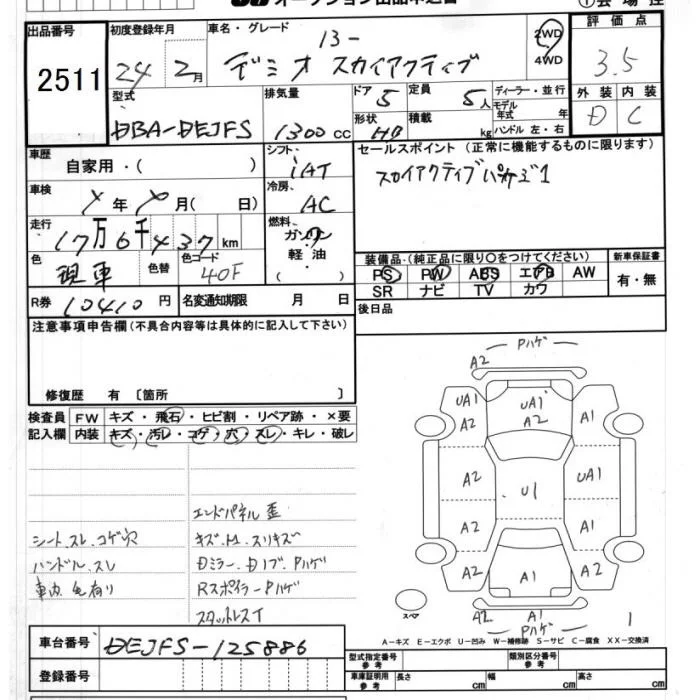 オークション出品申込書
①会場控
出品番号
2511
初度登録年月
24年2月
車名・グレード
13-
デミオ スカイアクティブ
2WD
4WD
評価点
3.5
型式
DBA-DEJFS
排気量
1300cc
ドア 5
形状 HB
定員 5人
積載 kg
ディーラー・並行
モデル年式 年
ハンドル 左・右
外装 内装
D C
車歴
自家用・( )
シフト
iAT
セールスポイント (正常に機能するものに限ります)
スカイアクティブパッケージ1
車検
年 月( 日)
冷房
AC
走行
17万6千437km
燃料
ガソリン
軽・油
( )
色
現車
色替
色コード
40F
装備品 (純正品に限り○をつけてください)
PS PW ABS エアB AW
SR ナビ TV カワ
新車保証書
有・無
R券 10410円
名変通知期限 月 日
後日品
注意事項申告欄(不具合内容等は具体的に記入して下さい)
修復歴 有 〔箇所 〕
検査員記入欄
FW キズ・飛石・ヒビ割・リペア跡・×要
内装 キズ・汚レ・コゲ・穴・スレ・キレ・破レ
エンドパネル歪
シート.スレ.コゲ穴
キズ.H.スリキズ
ハンドル.スレ
Dミラー.Dノブ.Pハゲ
車内 毛有り
Rスポイラー Pハゲ
スタットレスT
Pハゲ
A2
UA1 UA1 A1
A2 A2
A2 U1 UA1
A2 A2
A2 A1 A2
スペア
A2 A1 1
Pハゲ
A-キズ E-エクボ U-凹み W-補修跡 S-サビ C-腐食 XX-交換済
車台番号
DEJFS-125886
登録番号
型式指定番号 参考
類別区分番号 参考
車庫証明用 参考
長さ cm
幅 cm
高さ cm